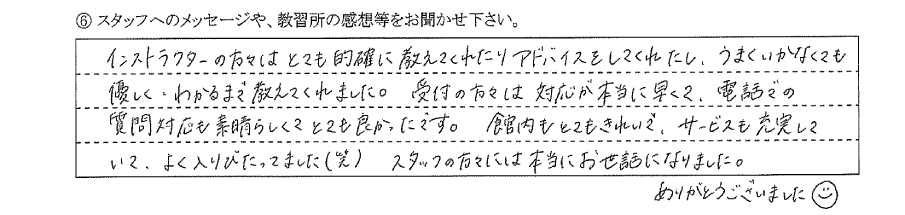 ⑥ スタッフへのメッセージや、教習所の感想等をお聞かせ下さい。
インストラクターの方々はとても的確に教えてくれたりアドバイスをしてくれたし、うまくいかなくても
優しく・わかるまで教えてくれました。受付の方々は対応が本当に早くて、電話での
質問対応も素晴らしくてとても良かったです。館内もとてもきれいで、サービスも充実して
いて、よく入りびたってました(笑) スタッフの方々には本当にお世話になりました。
ありがとうございました☺